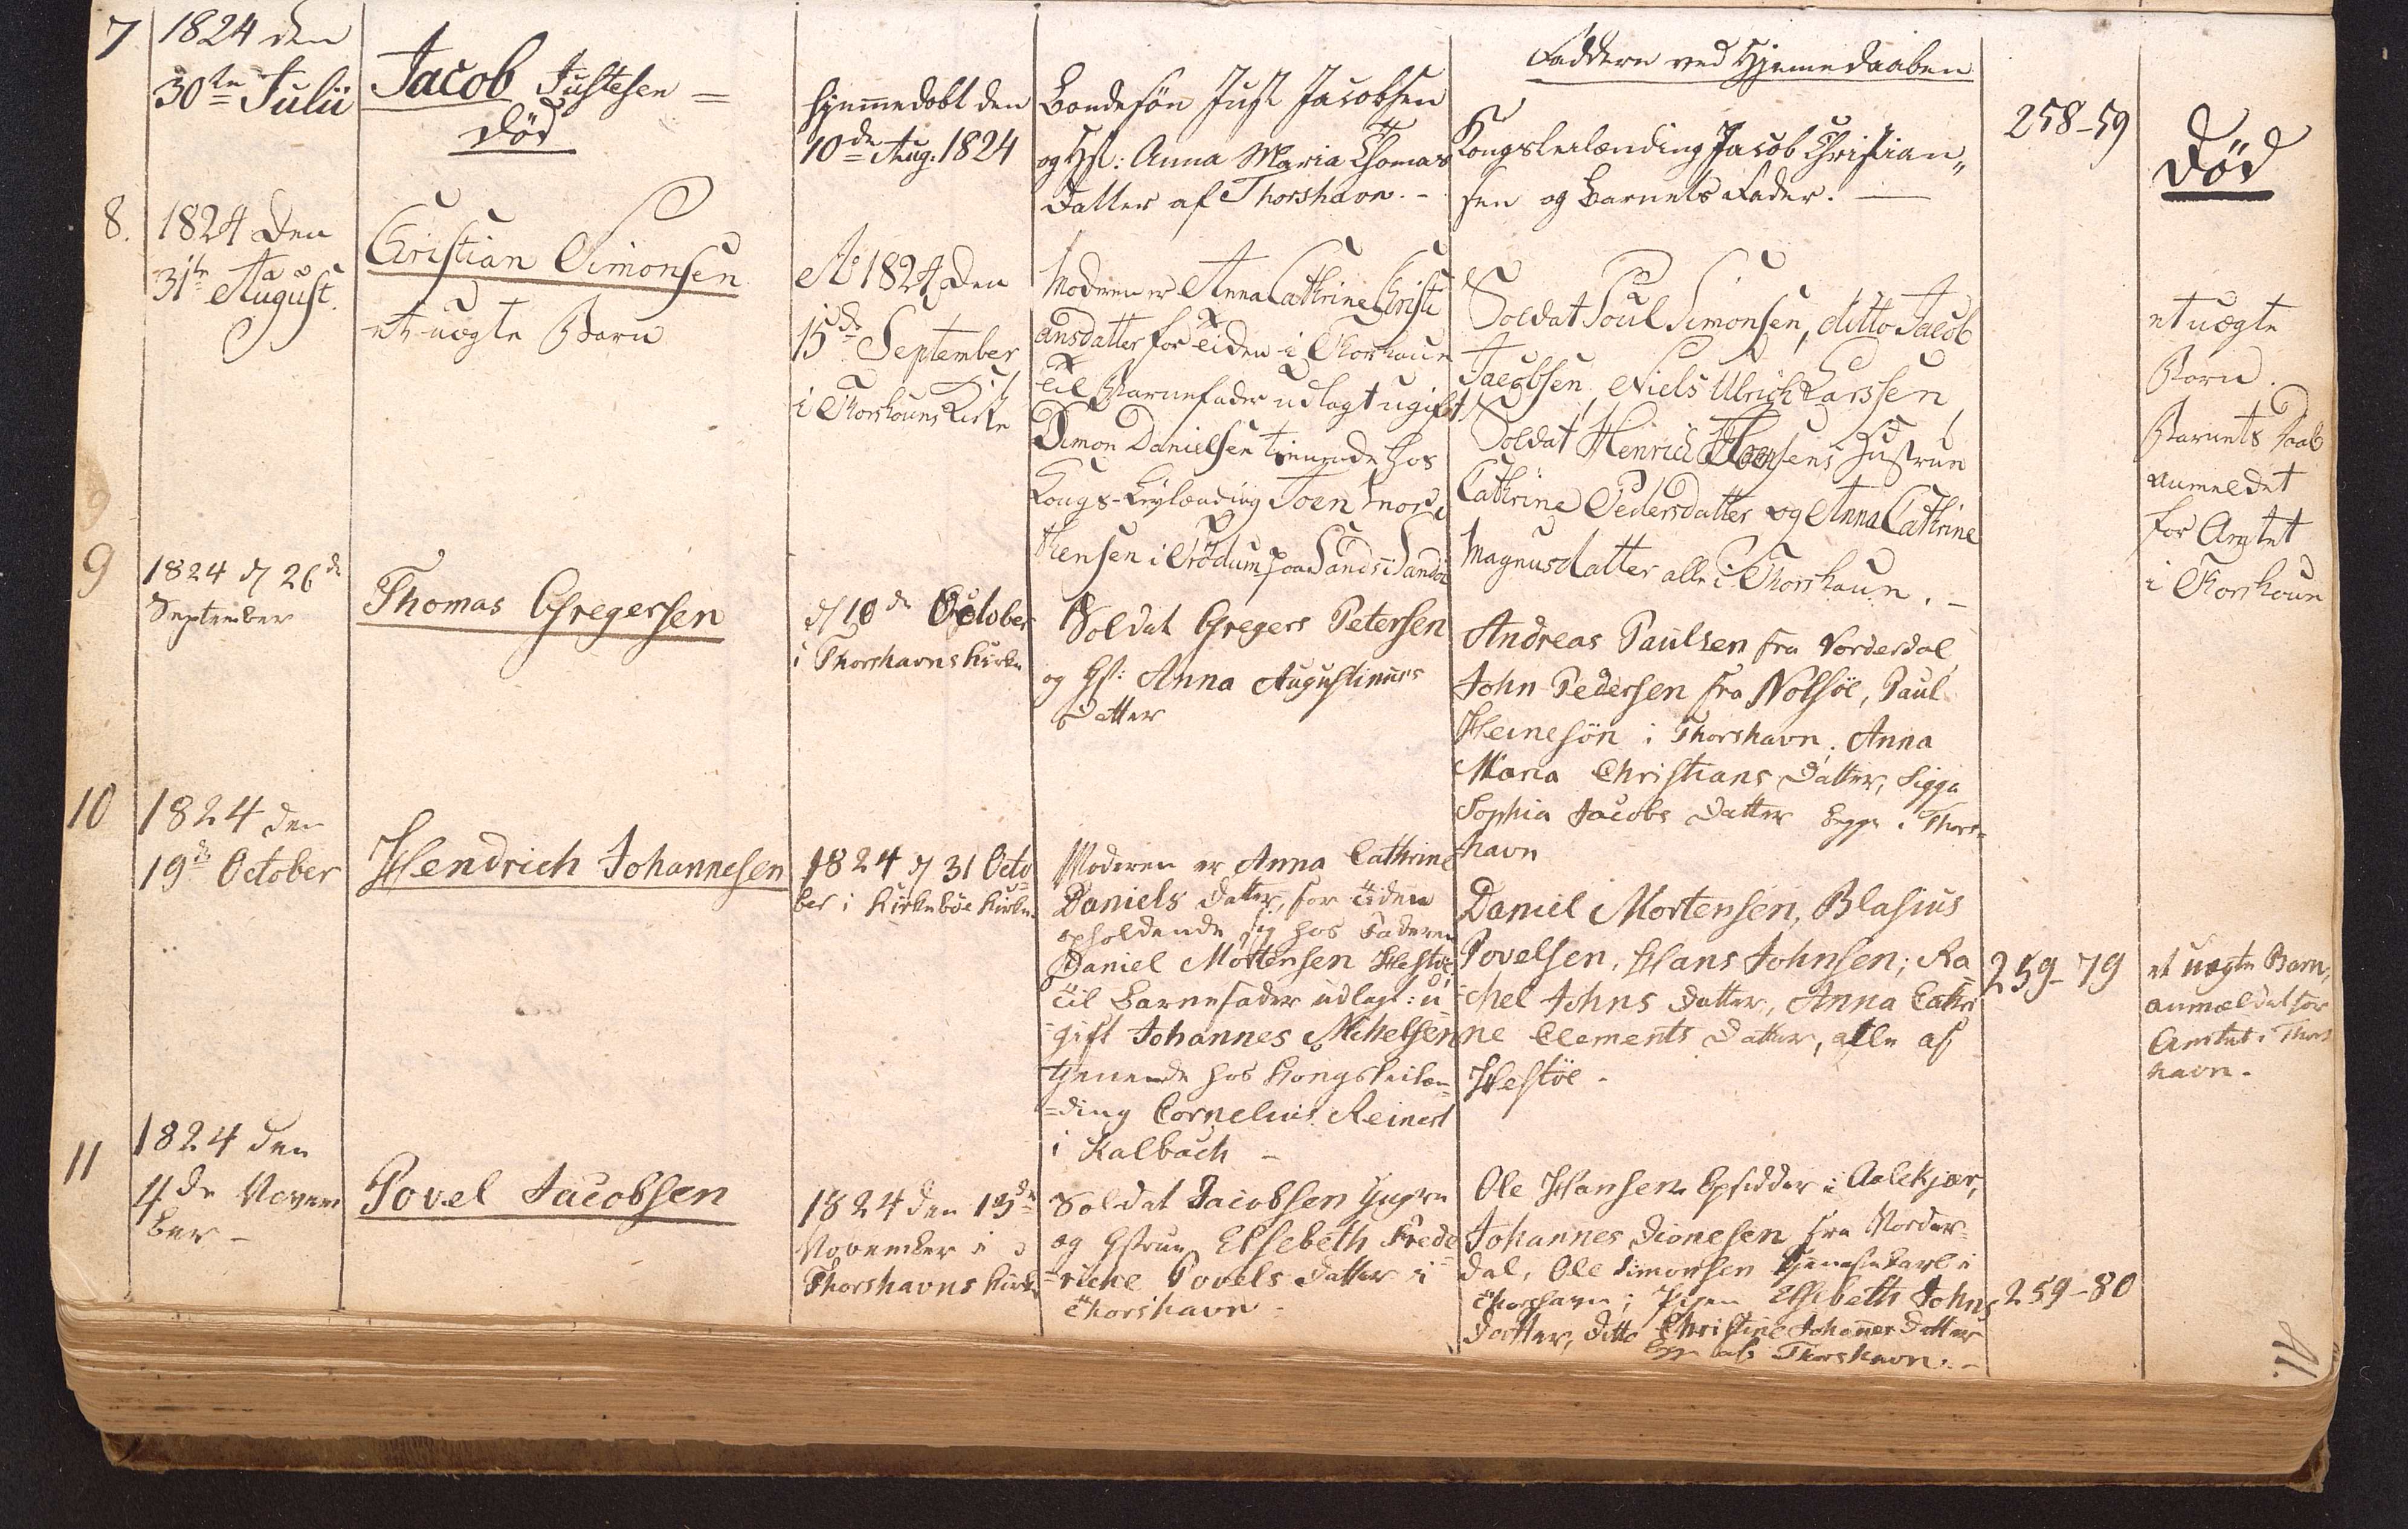 7
1824 den
30te Julii
Jacob Justesen =
død
hjemmedøbt den
10de Aug. 1824
Bondesøn Just Jacobsen
og Hst: Anna Maria Thomas
Datter af Thorshavn. -
Faddere ved Hjemmedaaben
Kongsleilænding Jacob Christian„
sen og Barnets Fader. —
258-59
død
8.
1824 den
31te August.
Christian Simonsen
et uægte Barn
Ao 1824 den
15de September
i Thorshauns Kirke
Moderen er Anna Cathrine Christi
ansdatter for Tiden i Thorshaun
til Barnefader udlagt ugift
Simon Danielsen tienende hos
Kongs-Leylænding Joen Mor
thensen i Trödum paa Sand i Sandöe
Soldat Poul Simonsen, ditto Jacob
Jacobsen, Niels Ulrich Larssen,
Soldat Henrich Hansens Hustrue
Cathrine Pedersdatter og Anna Cathrine
Magnusdatter alle i Thorshaun. -
et uægte
Barn.
Barnets Daab
anmeldet
for Amtet
i Thorshaun
9
1824 d 26de
September
Thomas Gregersen
d 10de October
i Thorshavns Kirke
Soldat Gregers Petersen
og Hst: Anna Augustinus
Datter
Andreas Paulsen fra Norderdal,
John Pedersen fra Nolsöe, Paul
Heinesön i Thorshavn. Anna
Maria Christians Datter, Sigga
Sophia Jacobs Datter begge i Thors-
havn
10
1824 den
19de October
Hendrich Johannesen
1824 d 31 Octo
ber i Kirkeböe Kirke.
Moderen er Anna Cathrine
Daniels Datter, for Tiden
opholdende sig hos Faderen
Daniel Mortensen Hestöe
til Barnefader udlagt: u
-gift Johannes Michelsen
tjenende hos Kongsleilæn-
=ding Cornelius Reinert
i Kalbach -
Daniel Mortensen, Blasius
Povelsen, Hans Johnsen; Ra
-chel Johns Datter, Anna Cathri
ne Clements Datter, alle af
Hestöe -
259-79
et uægte Barn,
anmeldet for
Amtet i Thors
havn.
11
1824 den
4de Novem
ber -
Povel Jacobsen
1824 den 13de
November i
Thorshavns Kirke
Soldat Jacobsen Yngre
og Hstrue Elsebeth Frede
=ricke Povels Datter i
Thorshavn -
Ole Hansen Opsidder i Aalekjær,
Johannes Dionesen fra Norder-
dal, Ole Simonsen Tjenestekarl i
Thorshavn; Pigen Elsebeth Johns
Datter, ditto Christine Johannes Datter
begge af Thorshavn. -
259-80